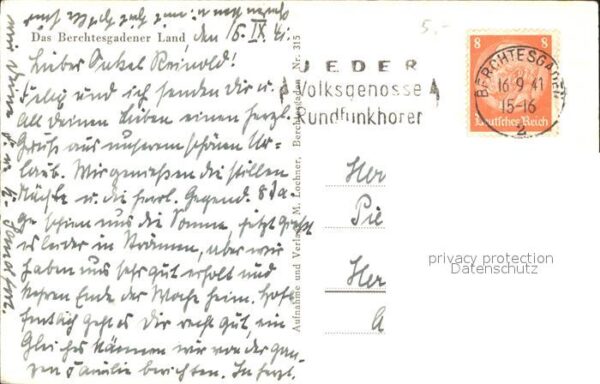 Das Berchtesgadener Land, den 16. IX. 41.
Lieber Onkel Reinold!
und ich senden dir u.
All deinen Lieben einen herzl.
Gruß aus unserem schönen Ur-
laub. Wir genießen die stillen
Nächte u. die herrl. Gegend. 8 Ta-
ge schien uns die Sonne, jetzt gießt
es leider in Strömen, aber wir
haben uns sehr gut erholt und
kehren Ende der Woche heim. Hof-
fentlich geht es Dir recht gut, ein
Gleiches können wir von der gan-
zen Familie berichten. In herzl.
Aufnahme und Verlag M. Lochner, Berchtesgaden Nr. 315
JEDER
Volksgenosse
Rundfunkhörer
8 8
Deutsches Reich
BERCHTESGADEN
16.9.41
15-16
2
Her
Her
privacy protection
Datenschutz
5,-